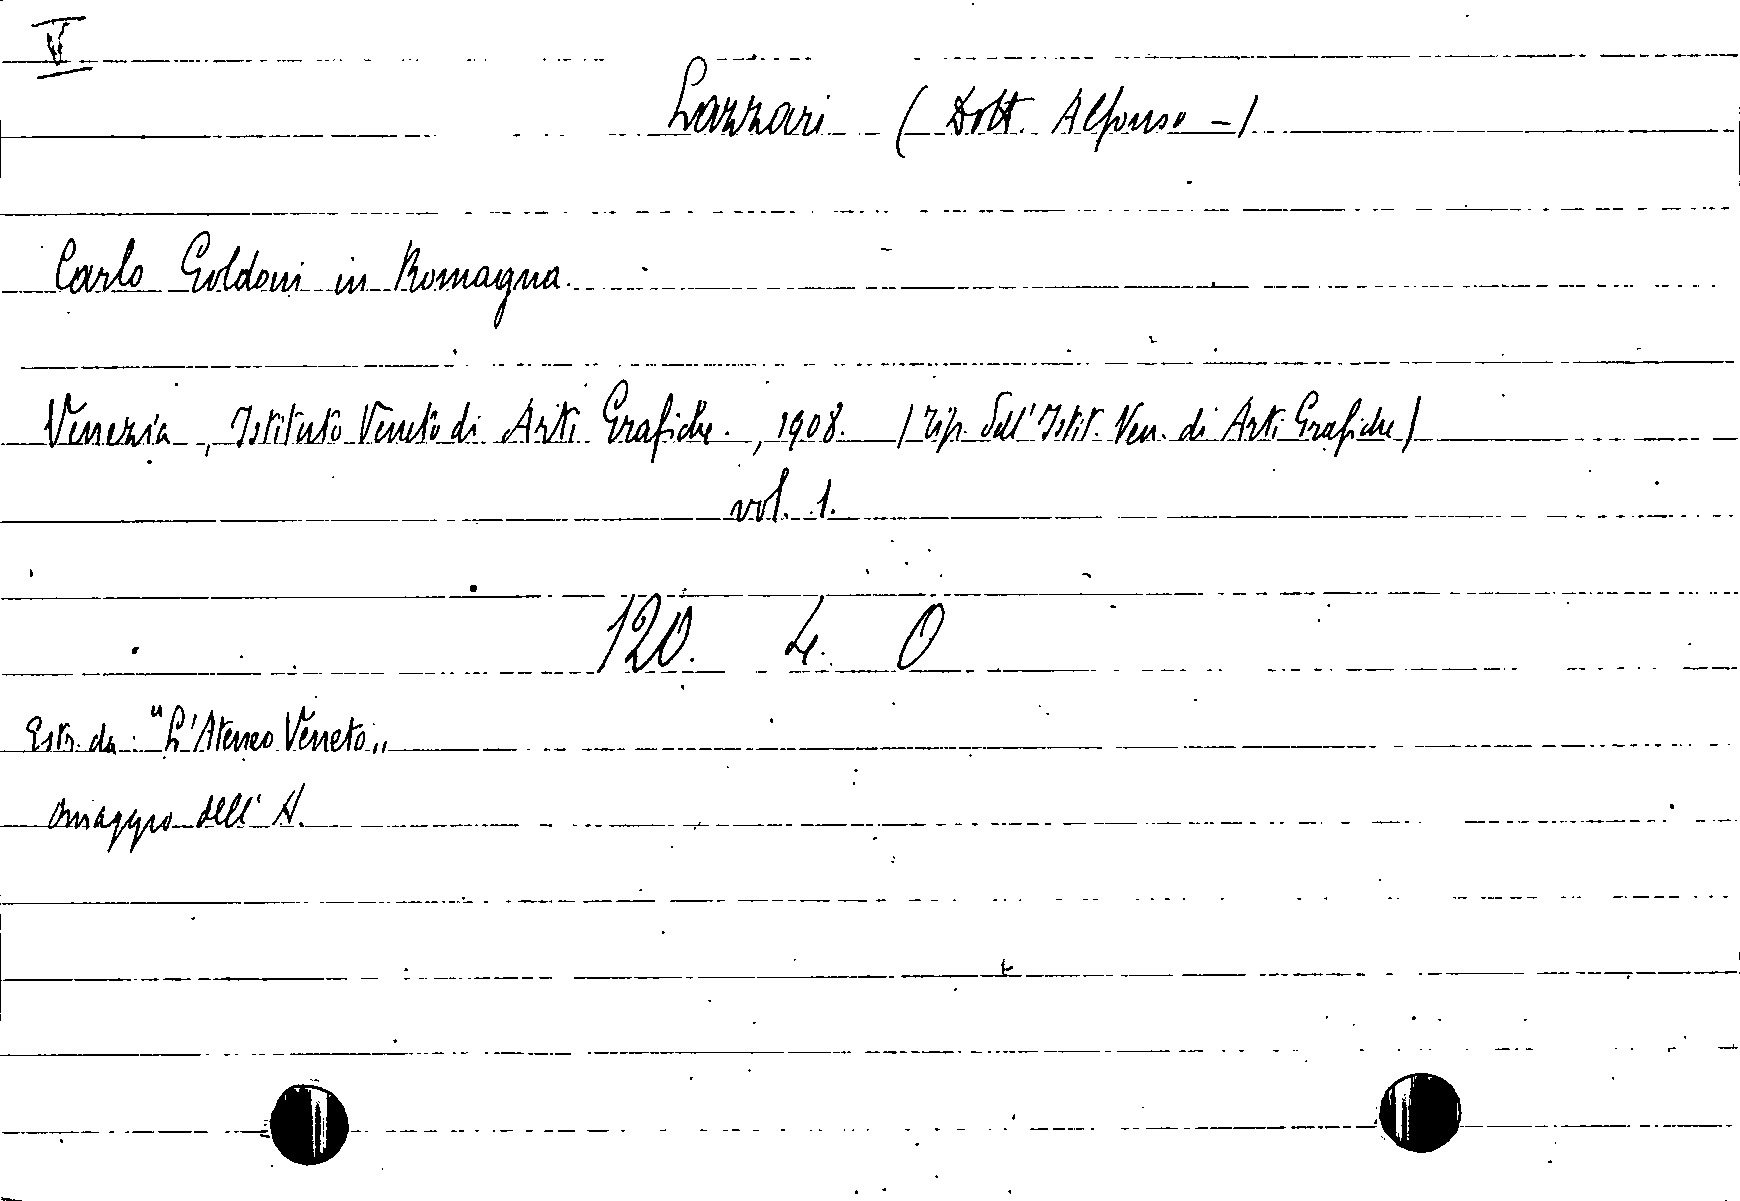 V
Lazzari (Dott. Alfonso -)
Carlo Goldoni in Romagna.
Venezia, Istituto Veneto di Arti Grafiche., 1908. (Tip. dell'Istit. Ven. di Arti Grafiche)
vol. 1.
120. 4. 0
Estr. da: "L'Ateneo Veneto"
Omaggio dell'A.